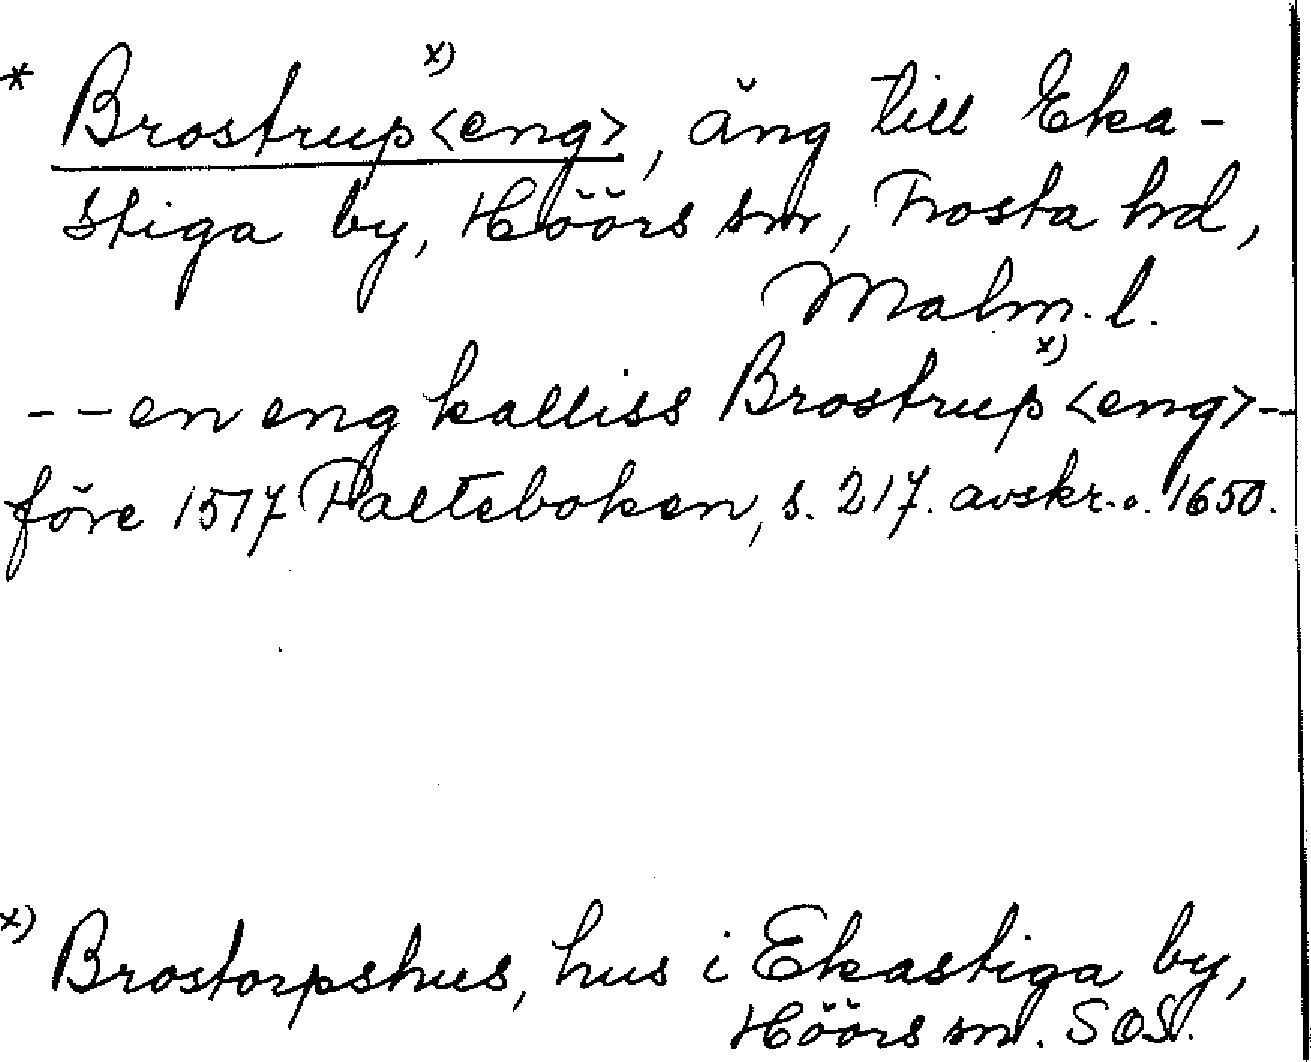 * Brostrup x) <eng>, äng till Eka-
stiga by, Höörs sn, Frosta hd,
Malm. l.
-- en eng kalliss Brostrup x) <eng> --
före 1517 Palteboken, s. 217. avskr. o. 1650.
x) Brostorpshus, hus i Ekastiga by,
Höörs sn. SOS.